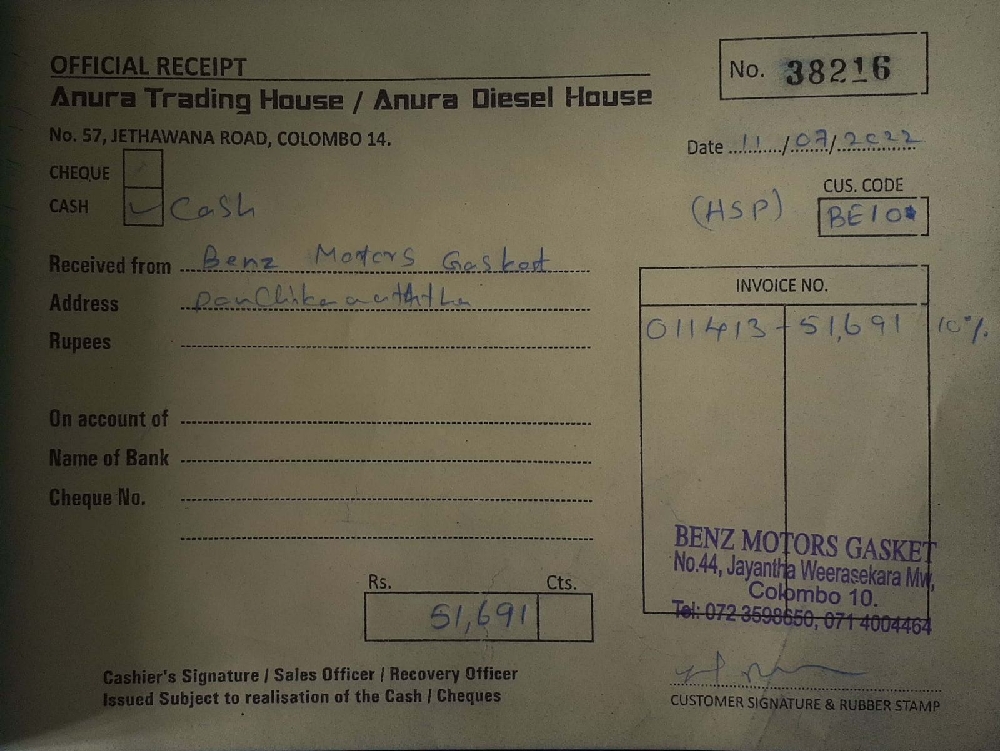 OFFICIAL RECEIPT
No. 38216
Anura Trading House / Anura Diesel House
No. 57, JETHAWANA ROAD, COLOMBO 14.
Date 11/07/2022
CHEQUE
CASH Cash
(HSP)
CUS. CODE
BE10
Received from Benz Motors Gasket
Address
Rupees
INVOICE NO.
011413 - 51,691 10%
On account of
Name of Bank
Cheque No.
BENZ MOTORS GASKET
No.44, Jayantha Weerasekara Mw,
Colombo 10.
Tel: 072 3598650, 071 4004464
Rs. Cts.
51,691
Cashier's Signature / Sales Officer / Recovery Officer
Issued Subject to realisation of the Cash / Cheques
CUSTOMER SIGNATURE & RUBBER STAMP